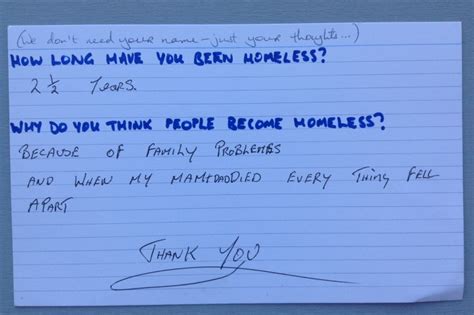 (We don't need your name - just your thoughts...)
HOW LONG HAVE YOU BEEN HOMELESS?
2 ½ Years.
WHY DO YOU THINK PEOPLE BECOME HOMELESS?
BECAUSE OF FAMILY PROBLEMS
AND WHEN MY MAM+DAD DIED EVERY THING FELL
APART
THANK YOU